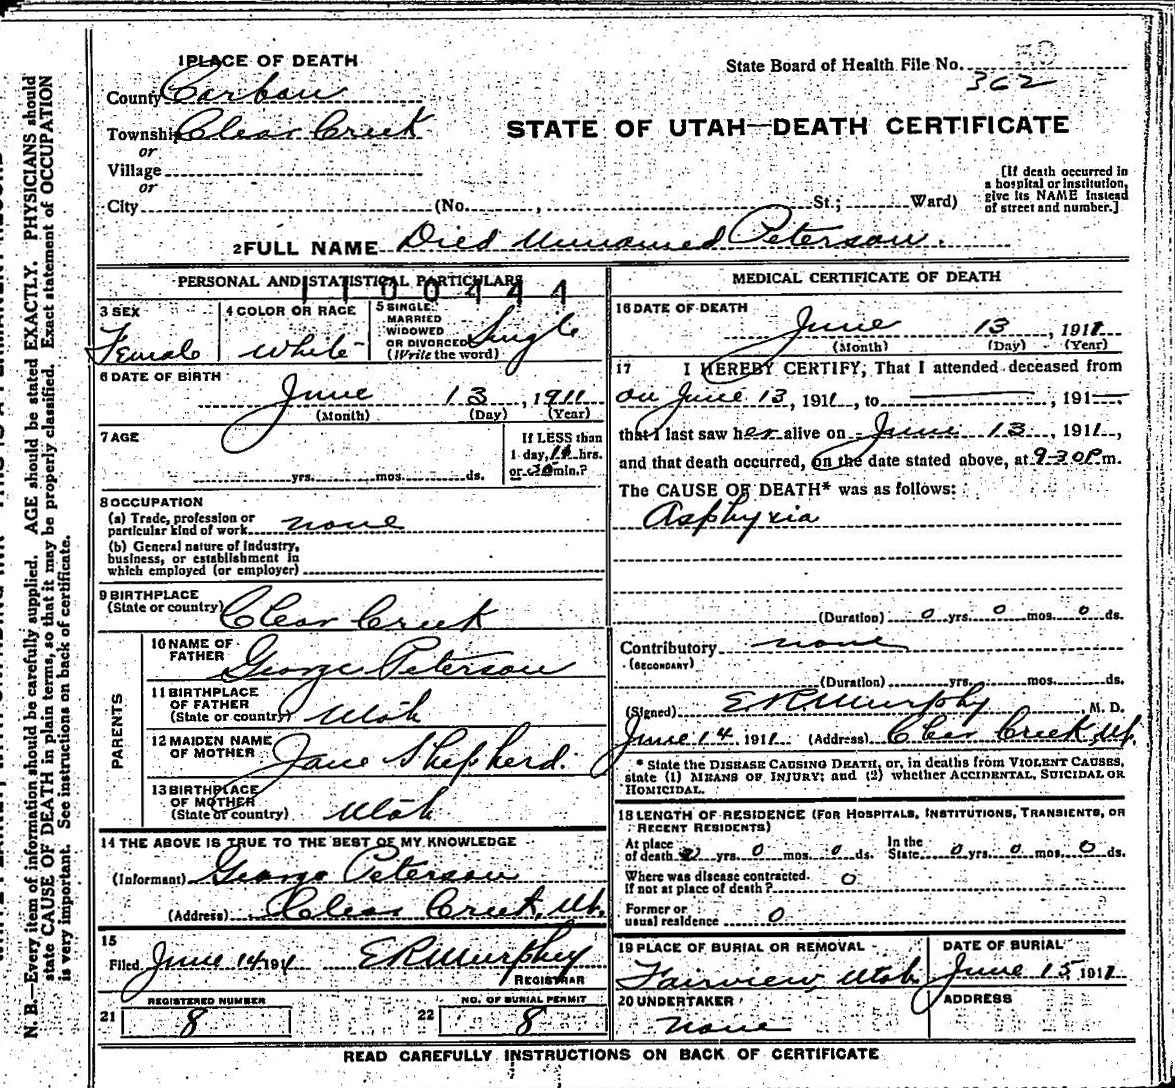 1 PLACE OF DEATH
State Board of Health File No. 59
362
County Carbon
Township Clear Creek
STATE OF UTAH—DEATH CERTIFICATE
or
Village
or
City (No. , St.; Ward)
[If death occurred in
a hospital or institution,
give its NAME instead
of street and number.]
2 FULL NAME Died Unnamed Peterson.
PERSONAL AND STATISTICAL PARTICULARS
1100444
3 SEX
Female
4 COLOR OR RACE
White
5 SINGLE
MARRIED
WIDOWED
OR DIVORCED
(Write the word)
Single
6 DATE OF BIRTH
June 13, 1911
(Month) (Day) (Year)
7 AGE
yrs. mos. ds.
If LESS than
1 day, hrs.
or 30 min.?
8 OCCUPATION
(a) Trade, profession or
particular kind of work none
(b) General nature of industry,
business, or establishment in
which employed (or employer)
9 BIRTHPLACE
(State or country) Clear Creek
PARENTS
10 NAME OF
FATHER George Peterson
11 BIRTHPLACE
OF FATHER
(State or country) Utah
12 MAIDEN NAME
OF MOTHER Jane Shepherd.
13 BIRTHPLACE
OF MOTHER
(State or country) Utah
14 THE ABOVE IS TRUE TO THE BEST OF MY KNOWLEDGE
(Informant) George Peterson
(Address) Clear Creek, Ut.
15
Filed June 14 191 1 E R Murphy
REGISTRAR
REGISTERED NUMBER
21 8
NO. OF BURIAL PERMIT
22 8
MEDICAL CERTIFICATE OF DEATH
16 DATE OF DEATH
June 13, 1911
(Month) (Day) (Year)
17 I HEREBY CERTIFY, That I attended deceased from
on June 13, 1911, to , 191
that I last saw her alive on June 13, 1911,
and that death occurred, on the date stated above, at 9-30 P m.
The CAUSE OF DEATH* was as follows:
Asphyxia
(Duration) 0 yrs. 0 mos. 0 ds.
Contributory none
(SECONDARY)
(Duration) yrs. mos. ds.
(Signed) E R Murphy M. D.
June 14, 1911 (Address) Clear Creek, Ut.
* State the DISEASE CAUSING DEATH, or, in deaths from VIOLENT CAUSES,
state (1) MEANS OF INJURY; and (2) whether ACCIDENTAL, SUICIDAL OR
HOMICIDAL.
18 LENGTH OF RESIDENCE (FOR HOSPITALS, INSTITUTIONS, TRANSIENTS, OR
RECENT RESIDENTS)
At place
of death 0 yrs. 0 mos. 0 ds. In the
State 0 yrs. 0 mos. 0 ds.
Where was disease contracted
If not at place of death? 0
Former or
usual residence 0
19 PLACE OF BURIAL OR REMOVAL
Fairview, Utah
DATE OF BURIAL
June 15, 1911
20 UNDERTAKER
none
ADDRESS
READ CAREFULLY INSTRUCTIONS ON BACK OF CERTIFICATE
N. B.—Every item of information should be carefully supplied. AGE should be stated EXACTLY. PHYSICIANS should
state CAUSE OF DEATH in plain terms, so that it may be properly classified. Exact statement of OCCUPATION
is very important. See instructions on back of certificate.